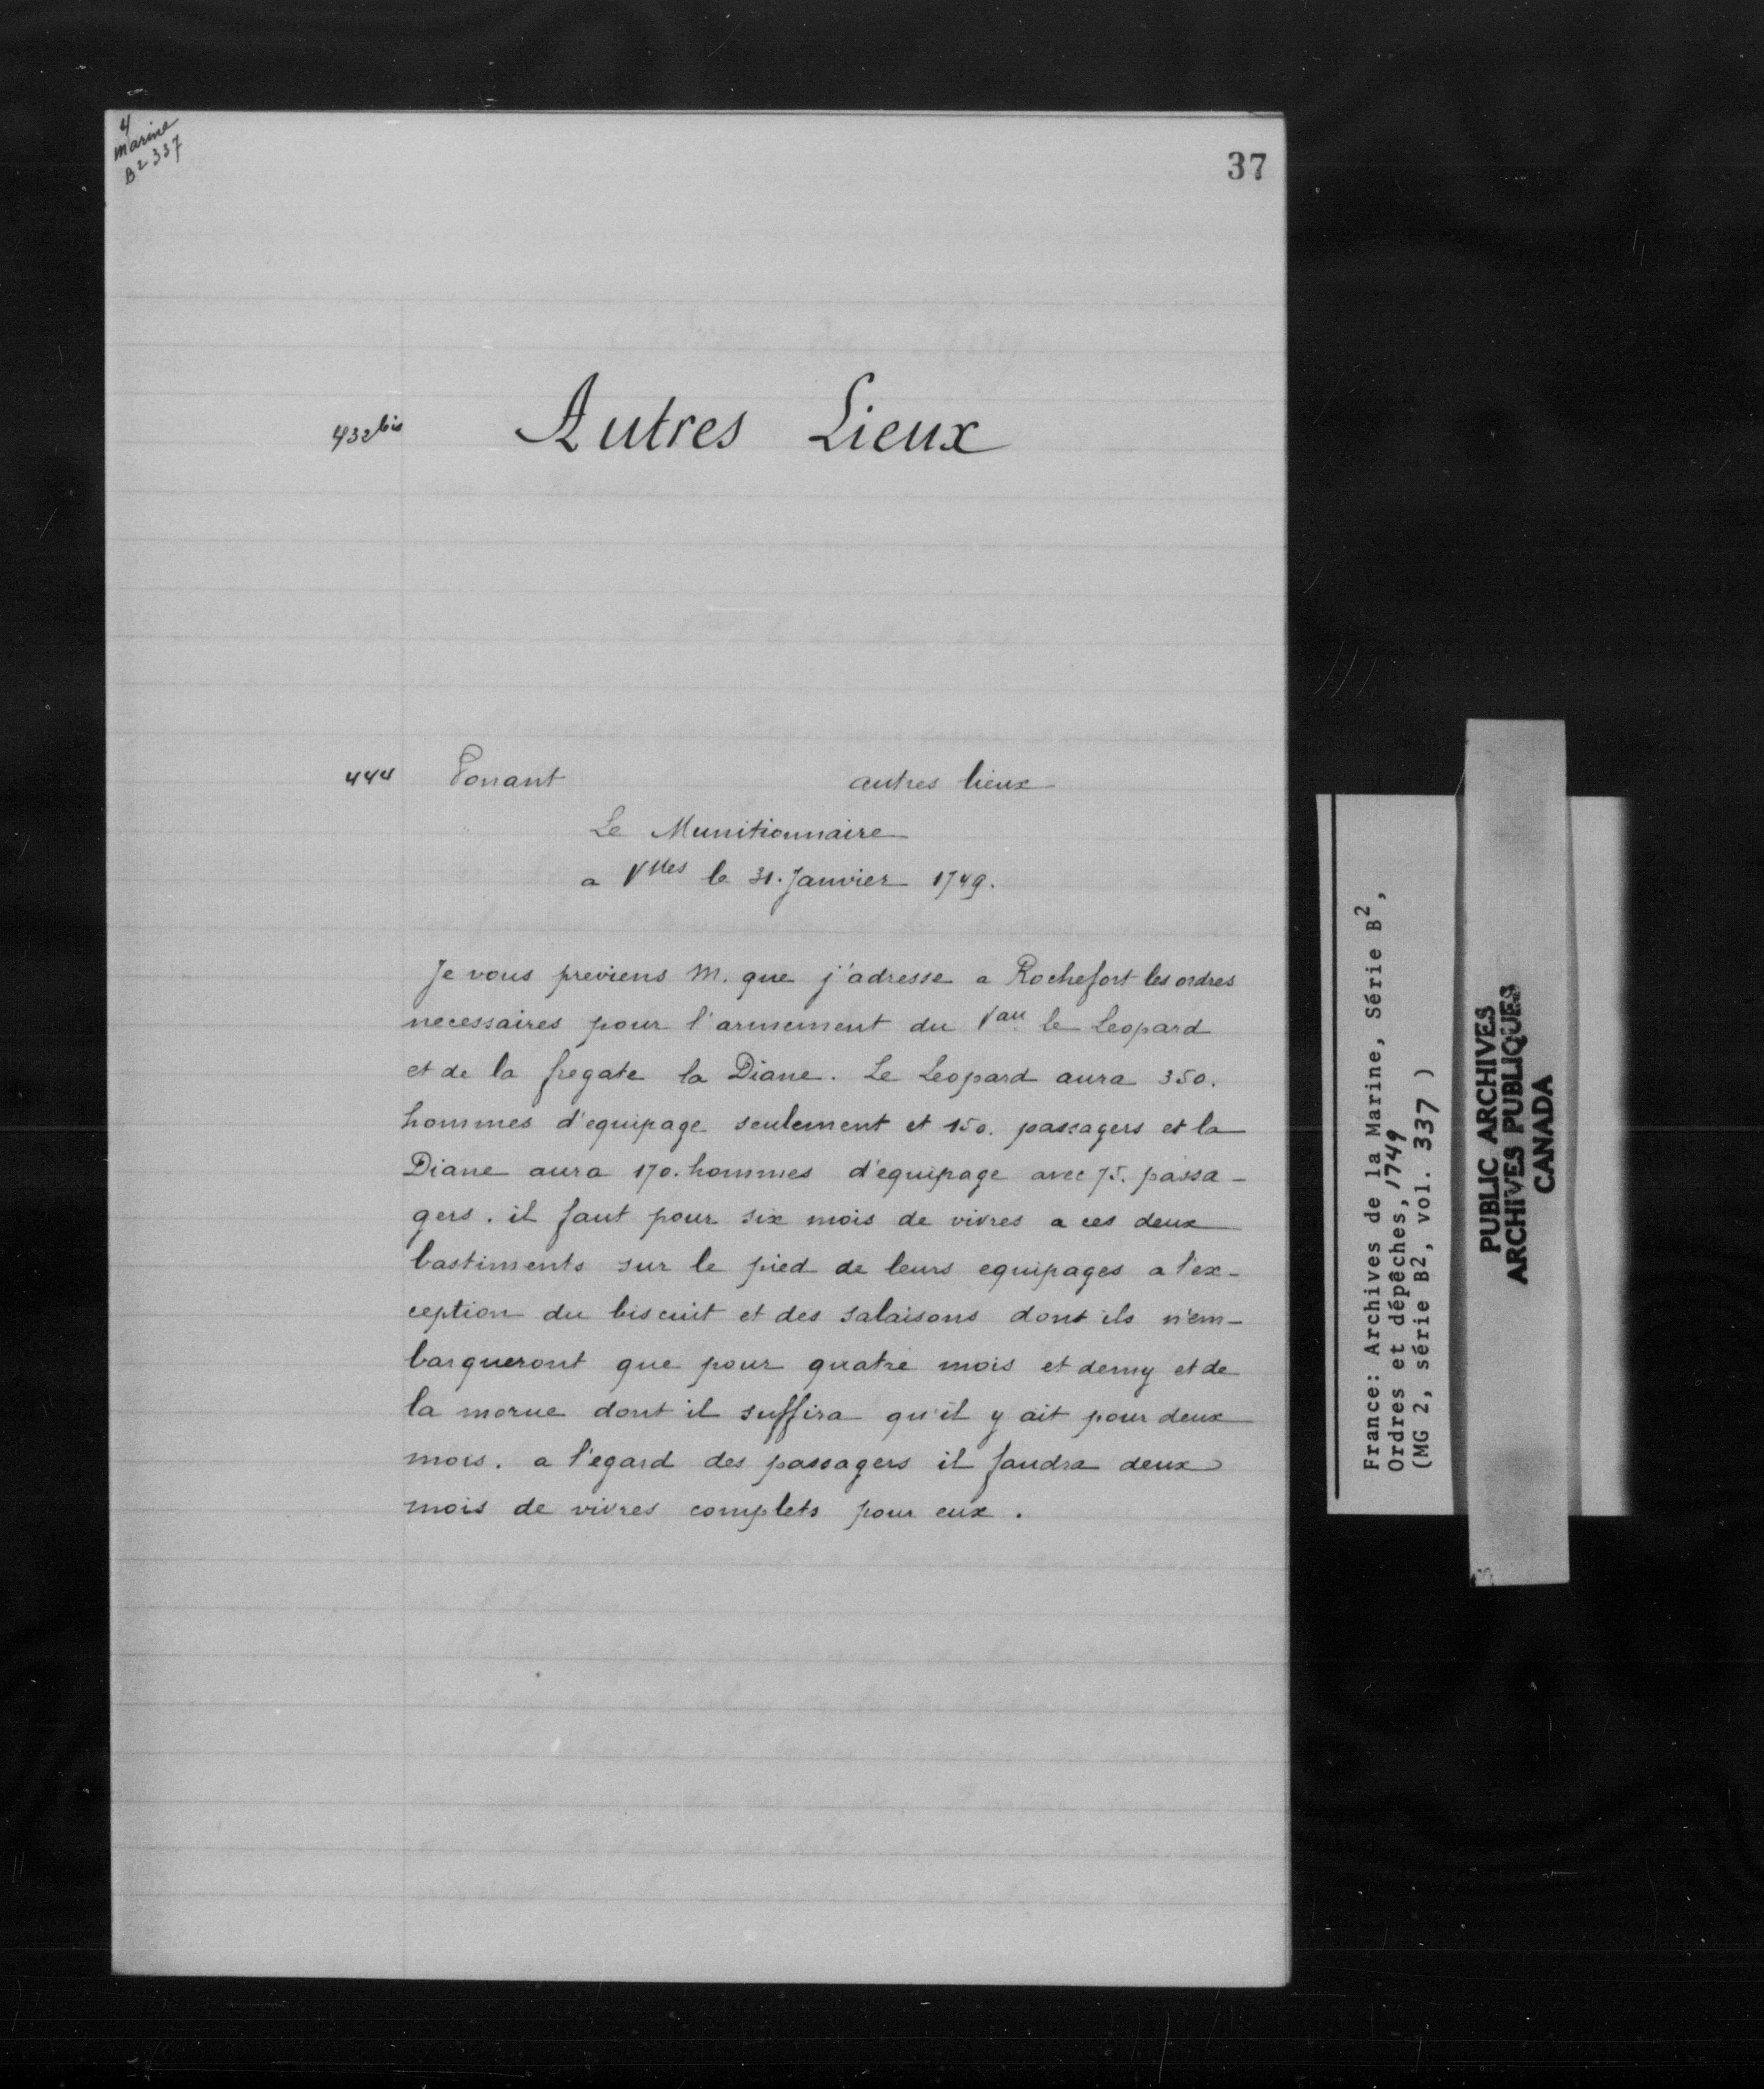 4
Marine
B2 337
37
432 bis Autres Lieux
444 Ponant autres lieux
Le Munitionnaire
a Vlles le 31. Janvier 1749.
Je vous previens M. que j'adresse a Rochefort les ordres
necessaires pour l'armement du Vau le Leopard
et de la fregate la Diane. Le Leopard aura 350.
hommes d'equipage seulement et 150. passagers et la
Diane aura 170. hommes d'equipage avec 75. passa-
gers. il faut pour six mois de vivres a ces deux
bastiments sur le pied de leurs equipages a l'ex-
ception du biscuit et des salaisons dont ils n'em-
barqueront que pour quatre mois et demy et de
la morue dont il suffira qu'il y ait pour deux
mois. a l'egard des passagers il faudra deux
mois de vivres complets pour eux.
France: Archives de la Marine, Série B2,
Ordres et dépêches, 1749
(MG 2, série B2, vol. 337 )
PUBLIC ARCHIVES
ARCHIVES PUBLIQUES
CANADA